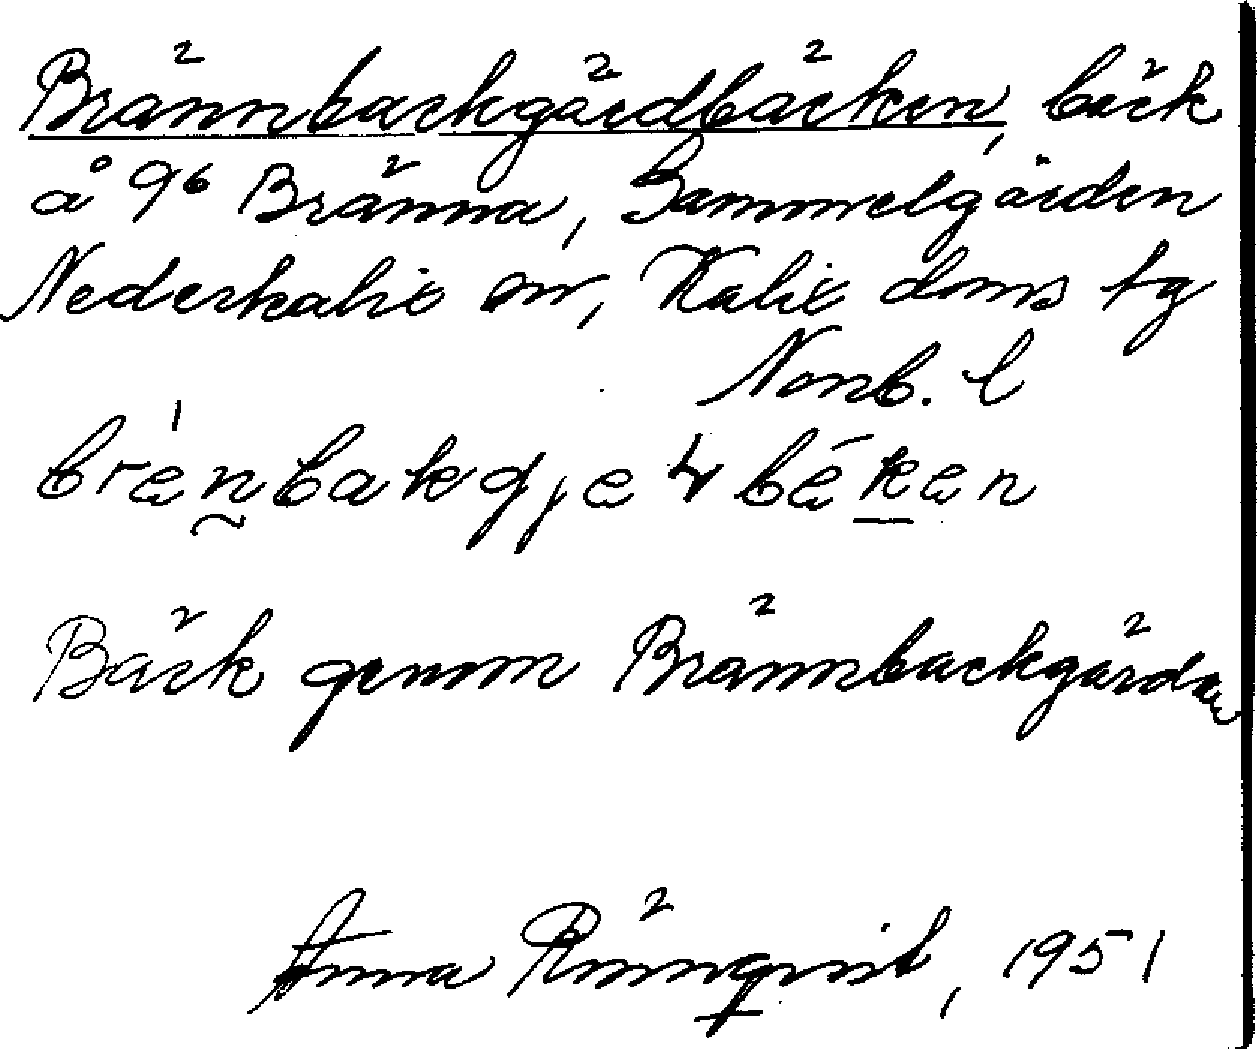 Brännbackgärdbäcken, bäck
å 9⁶ Bränna, Gammelgården
Nederkalix sn, Kalix doms tg
Norrb. l
Bäck genom Brännbackgärdan
Anna Rönnqvist, 1951